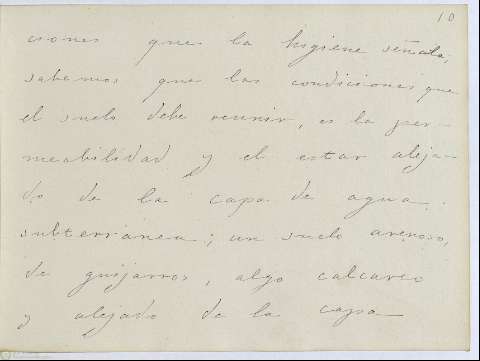 10
ciones que la higiene señala,
sabemos que las condiciones que
el suelo debe reunir, es la per-
meabilidad y el estar aleja-
do de la capa de agua
subterranea; un suelo arenoso,
de guijarros, algo calcareo
y alejado de la capa